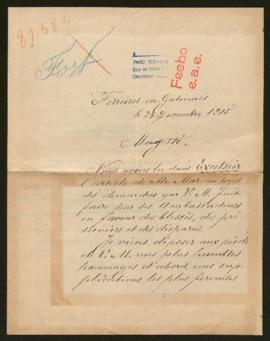 89.582
Fort
Fecho
e.a.e.
Ferrières-en-Gâtinais
le 28 Décembre 1915
Majesté,
Nous avons lu dans Excelsior
l'article de Mr. Mar au sujet
des demandes que V. M. fait
faire par ses Ambassadeurs
en faveur des blessés, des pri-
sonniers et des disparus.
Je viens déposer aux pieds
de V. M. mes plus humbles
hommages et d'abord mes sup-
plications les plus ferventes